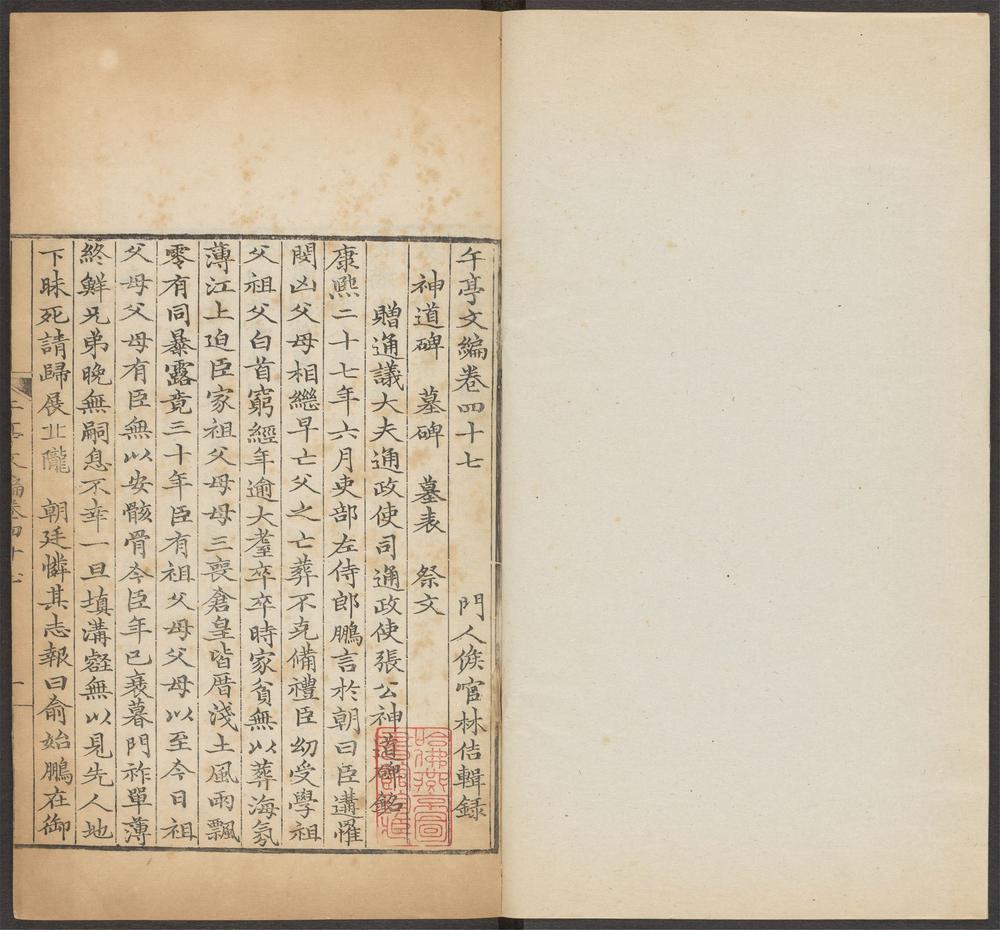 午亭文編卷四十七
門人侯官林佶輯録
神道碑 墓碑 墓表 祭文
贈通議大夫通政使司通政使張公神道碑銘
康熙二十七年六月吏部左侍郎鵬言於朝曰臣遘罹
閔凶父母相繼早亡父之亡葬不克備禮臣幼受學祖
父祖父白首窮經年逾大耋卒卒時家貧無以葬海氛
薄江上迫臣家祖父母母三喪倉皇皆厝淺土風雨飄
零有同暴露竟三十年臣有祖父母父母以至今日祖
父母父母有臣無以安骸骨今臣年已衰暮門祚單薄
終鮮兄弟晚無嗣息不幸一旦填溝壑無以見先人地
下昧死請歸展丘隴 朝廷憐其志報曰俞始鵬在御
午亭文編卷四十七
一
哈佛燕京圖